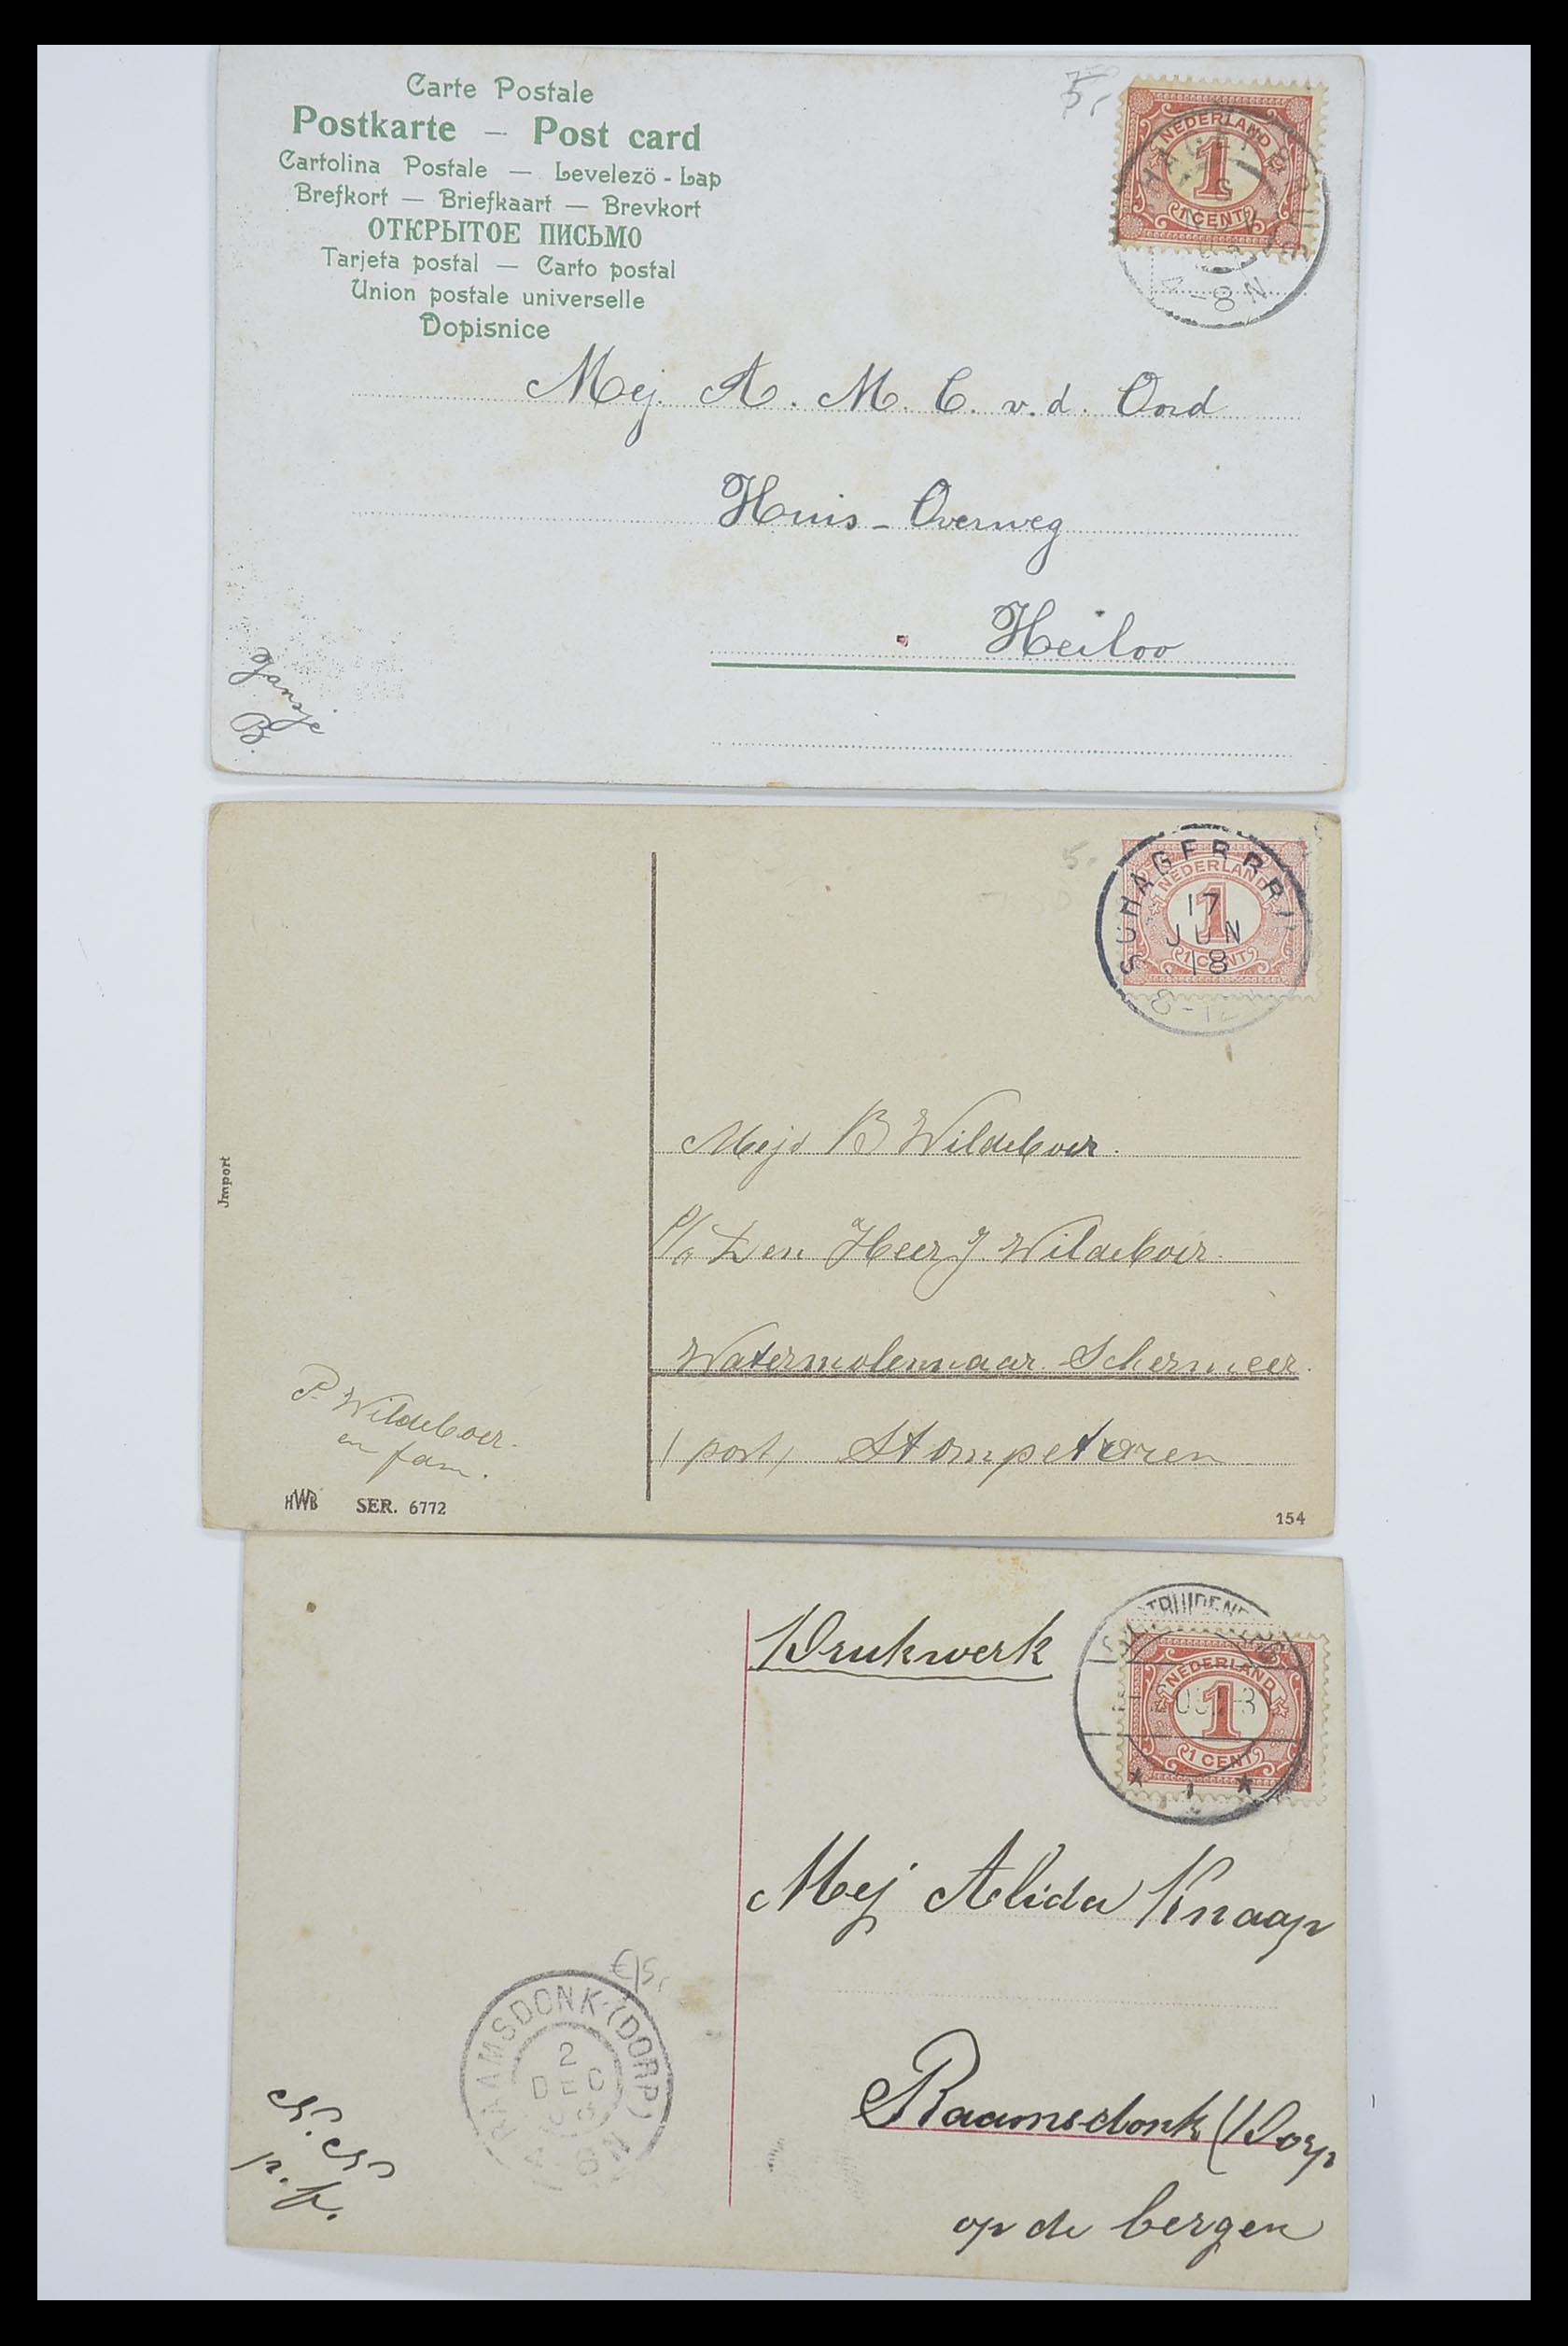 Carte Postale
Postkarte – Post card
Cartolina Postale — Levelezö - Lap
Brefkort — Briefkaart — Brevkort
ОТКРЫТОЕ ПИСЬМО
Tarjeta postal — Carto postal
Union postale universelle
Dopisnice
5,-
NEDERLAND
1
1 CENT
8 N
Mej. A. M. C. v. d. Oord
Huis - Overweg
Heiloo
Jansje
B.
5.-
SCHAGERBR
NEDERLAND
1
1 CENT
17
JUN
18
8-12
Import
Mejd B Wildeboer.
p/a Den Heer J. Wildeboer.
Watermolenaar Schermeer.
(post) Stompetoren
P. Wildeboer.
en fam.
HWB SER. 6772
154
Drukwerk
NEDERLAND
1
1 CENT
Mej Alida Knaap
€5,
RAAMSDONK-(DORP)
2
DEC
08
8N
Raamsdonk (Dorp
op de bergen
p. k.